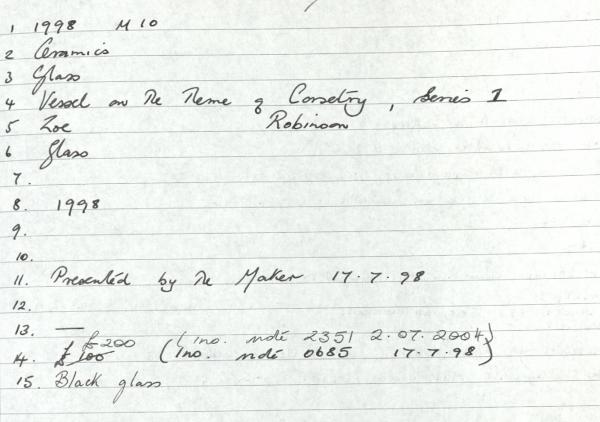 1 1998 M 10
2 Ceramics
3 Glass
4 Vessel on the Theme of Corsetry, Series 1
5 Zoe Robinson
6 Glass
7.
8. 1998
9.
10.
11. Presented by the Maker 17.7.98
12.
13. —
£200 (ino. note 2351 2.07.2004)
14. £100 (ino. note 0685 17.7.98)
15. Black glass